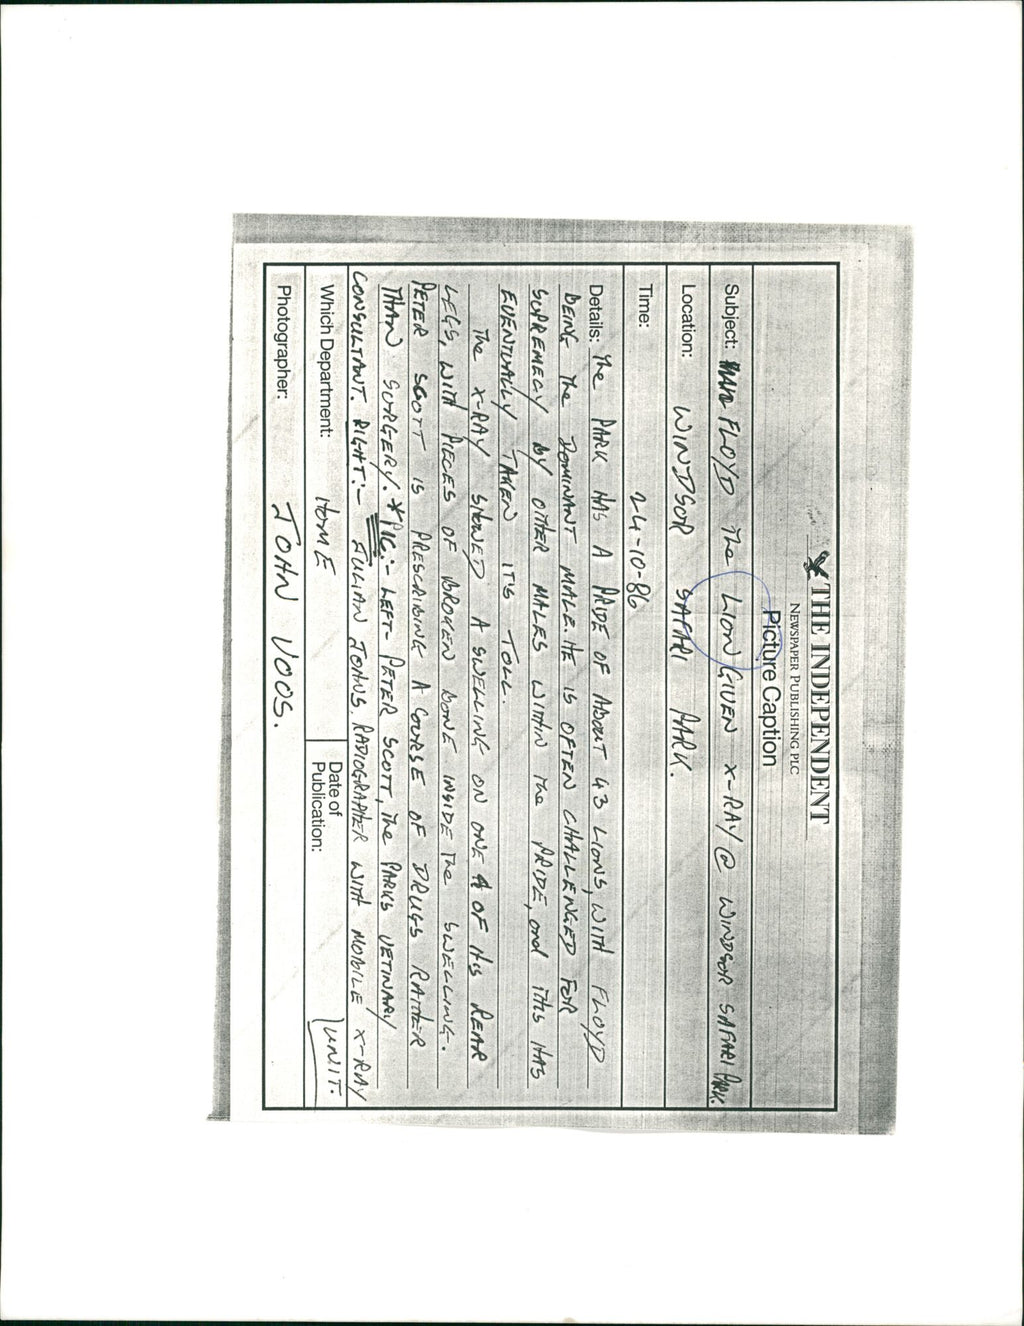 THE INDEPENDENT
NEWSPAPER PUBLISHING PLC
Picture Caption
Subject: FLOYD The LION GIVEN X-RAY @ WINDSOR SAFARI PARK.
Location: WINDSOR SAFARI PARK.
Time: 24-10-86
Details: The PARK HAS A PRIDE OF ABOUT 43 LIONS, WITH FLOYD
BEING The DOMINANT MALE. HE IS OFTEN CHALLENGED FOR
SUPREMECY BY OTHER MALES WITHIN The PRIDE, and THIS HAS
EVENTUALLY TAKEN IT'S TOLL.
The X-RAY SHOWED A SWELLING ON ONE OF HIS REAR
LEGS, WITH PIECES OF BROKEN BONE INSIDE The SWELLING.
PETER SCOTT IS PRESCRIBING A COURSE OF DRUGS RATHER
THAN SURGERY. *PIC:- LEFT- PETER SCOTT, The PARKS VETINARY
CONSULTANT. RIGHT:- JULIAN JOHNS, RADIOGRAPHER WITH MOBILE X-RAY
UNIT.
Which Department: HOME
Date of
Publication:
Photographer: JOHN VOOS.